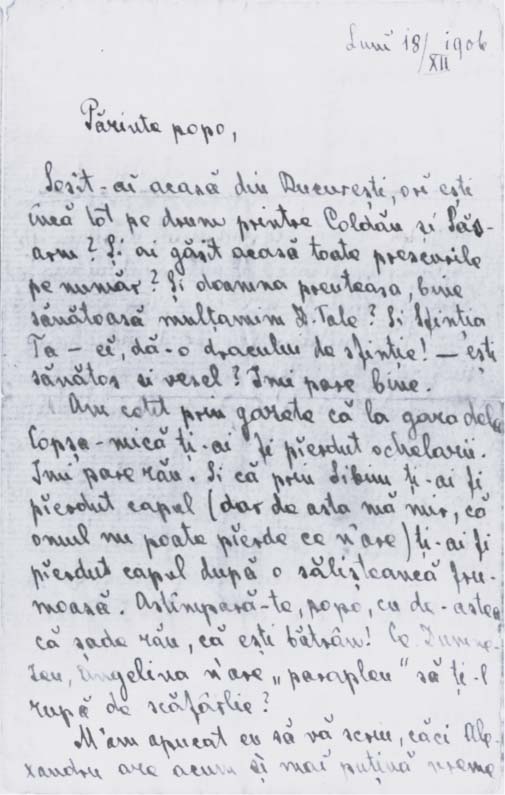 Lunĭ 18/XII 1906
Părinte popo,
Sosit-ai acasă din Bucureștĭ, orĭ eștĭ
încă tot pe drum printre Coldău și Păs-
arm? Și ai găsit acasă toate prescurile
pe număr? Și doamna preuteasa, bine
sănătoasă mulțamim D-Tale? Si Sfintia
Ta – eĭ, dă-o dracului de sfinție! – eștĭ
sănătos si vesel? Imi pare bine.
Am cetit prin gazete că la gara dela
Copșa-mică țĭ-ai fi pĭerdut ochelarii.
Imĭ pare rău. Si că prin Sibiiu țĭ-ai fi
pĭerdut capul (dar de asta mă mir, că
omul nu poate pĭerde ce n'are) țĭ-ai fi
pĭerdut capul după o sălișteancă fru-
moasă. Astîmpără-te, popo, cu de-astea
că șade rău, că eștĭ bătrân! Ce Dumne-
zeu, Angelina n'are „parapleu" să țĭ-l
rupă de scăfârlie?
M'am apucat eu să vă scriu, căcĭ Ale-
xandru are acum șĭ maĭ puțină vreme